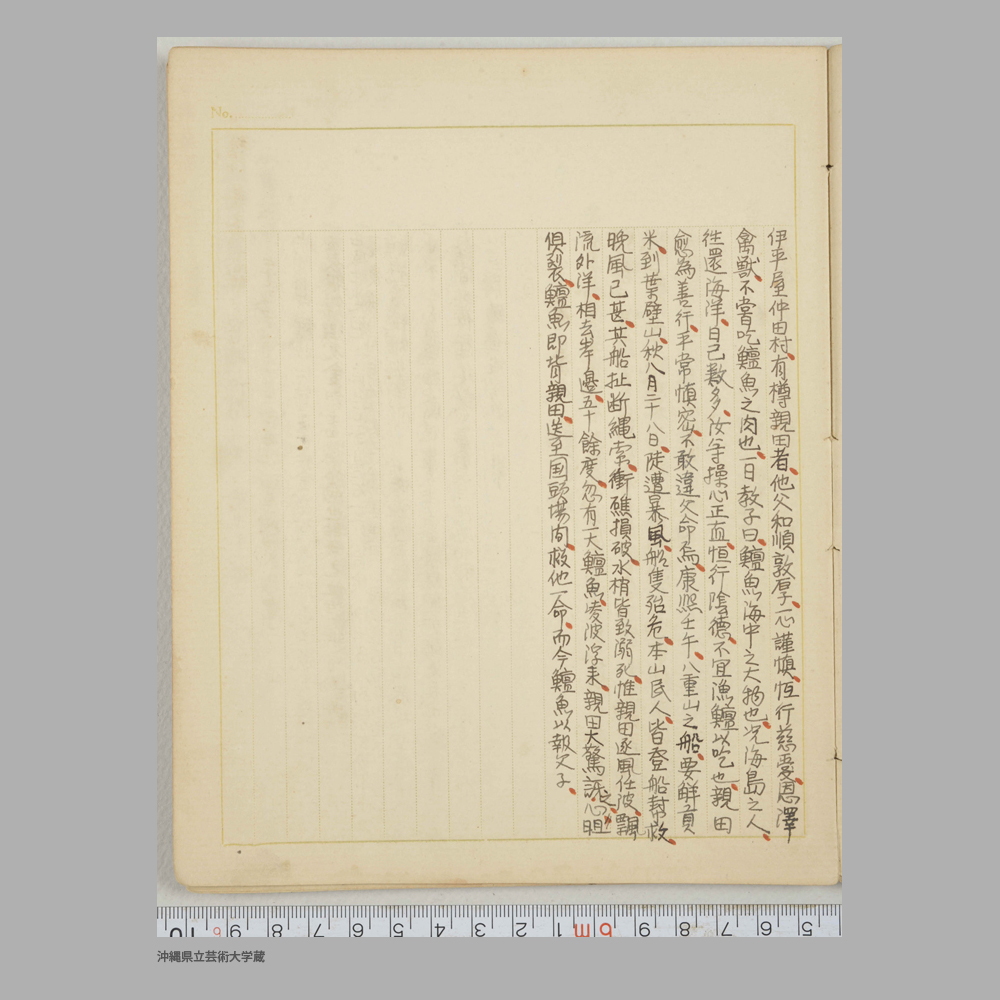 No.
伊平屋仲田村、有樽親田者、他父和順敦厚、心謹慎、恆行慈愛、恩澤
禽獸、不嘗吃鱣魚之肉也、一日教子曰、鱣魚海中之大物也、况海島之人、
徃還海洋、日已數多、汝等操心正直、恒行陰德、不宜漁鱣以吃也、親田
愈為善行、平常慎密、不敢違父命焉、康熙壬午、八重山之船、要鮮貢
米、到葉壁山、秋八月二十八日、陡遭暴風、船隻殆危、本山民人、皆登船幇救、
晚風已甚、其船扯断繩索、衝礁損破、水梢皆致溺死、惟親田逐風任波、飄
流外洋、相去岸邊、五十餘度、忽有一大鱣魚、凌波浮来、親田大驚訴之心
俱裂、鱣魚即背親田、送至国頭塲間、救他一命、而今鱣魚以報父子、
10 6 9 8 7 6 5 4 3 2 1 m6 9 8 7 6 5
沖縄県立芸術大学蔵